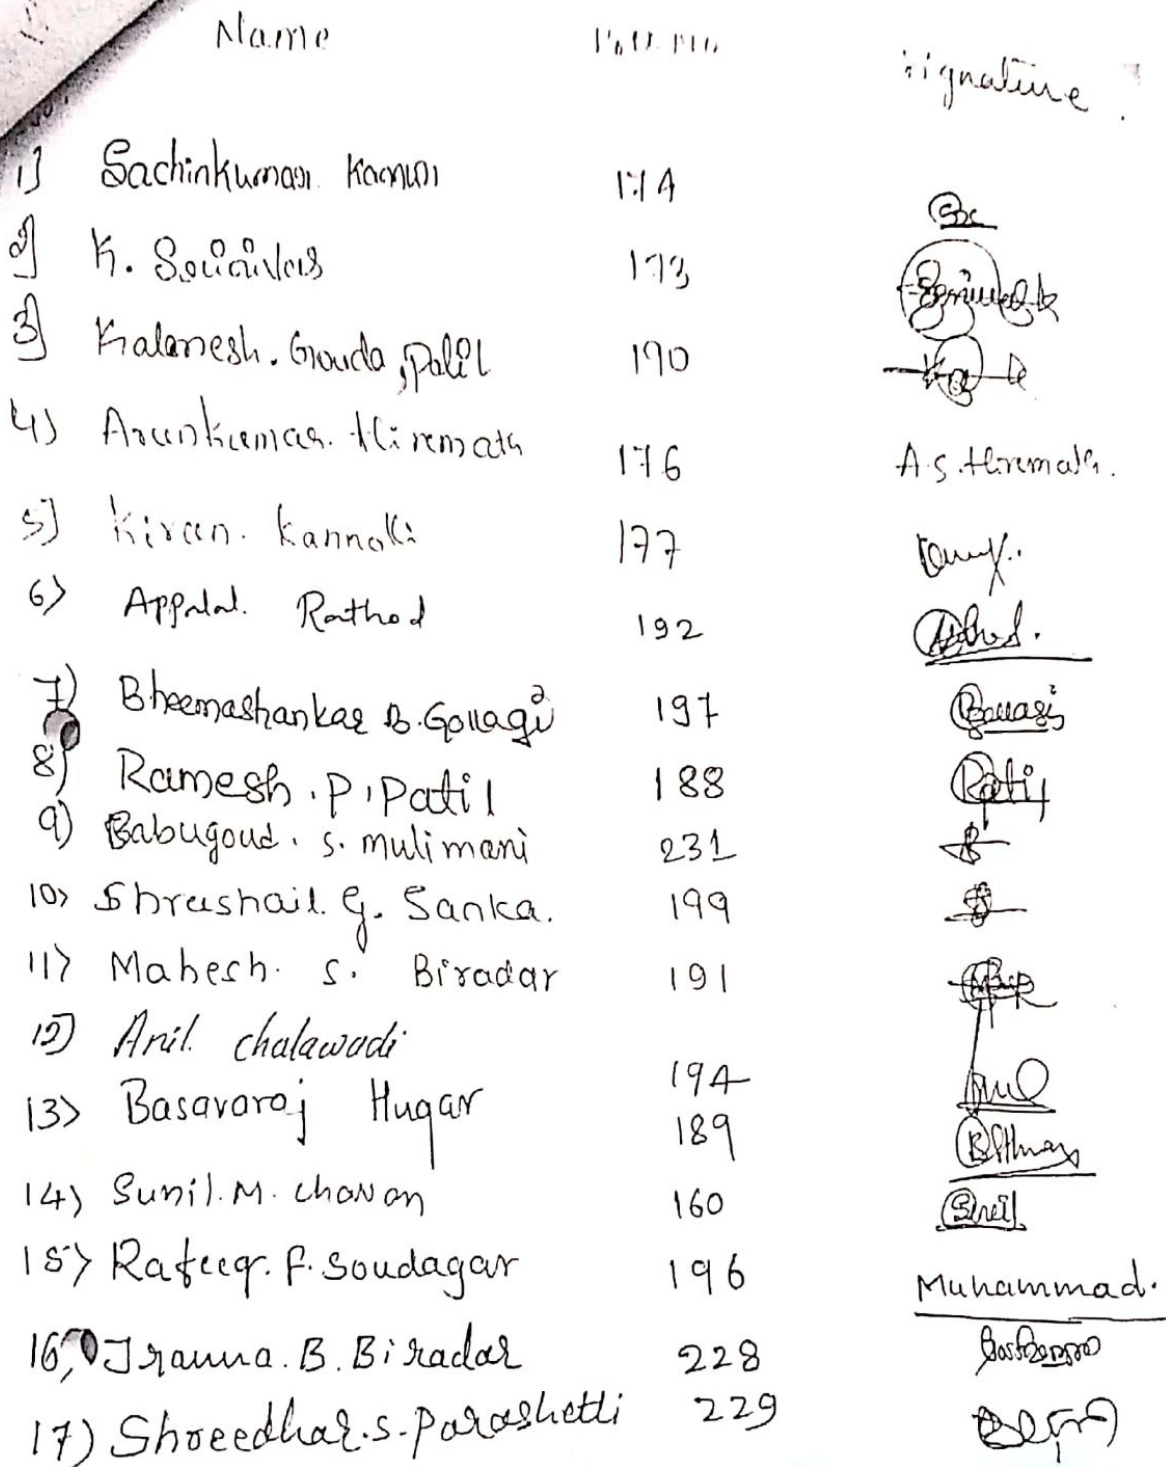 Name Roll No. Signature
1] Sachinkumar 174
2] K. 173
3] Kalamesh. Gouda, Patil 190
4) Arunkumar. Hiremath 176 A.S. Hiremath.
5] Kiran. Kannolli 177
6) Appalal. Rathod 192
7) Bheemashankar B. Gollagi 197
8) Ramesh. P. Patil 188 Patil
9) Babugoud. S. mulimani 231
10) Shreeshail. G. Sanka. 199
11) Mahesh. S. Biradar 191
12) Anil. chalawadi 194
13) Basavaraj Hugar 189
14) Sunil. M. chavan 160
15) Rafeeq. F. Soudagar 196 Muhammad.
16) Iranna. B. Biradar 228
17) Shreedhar. S. Parashetti 229